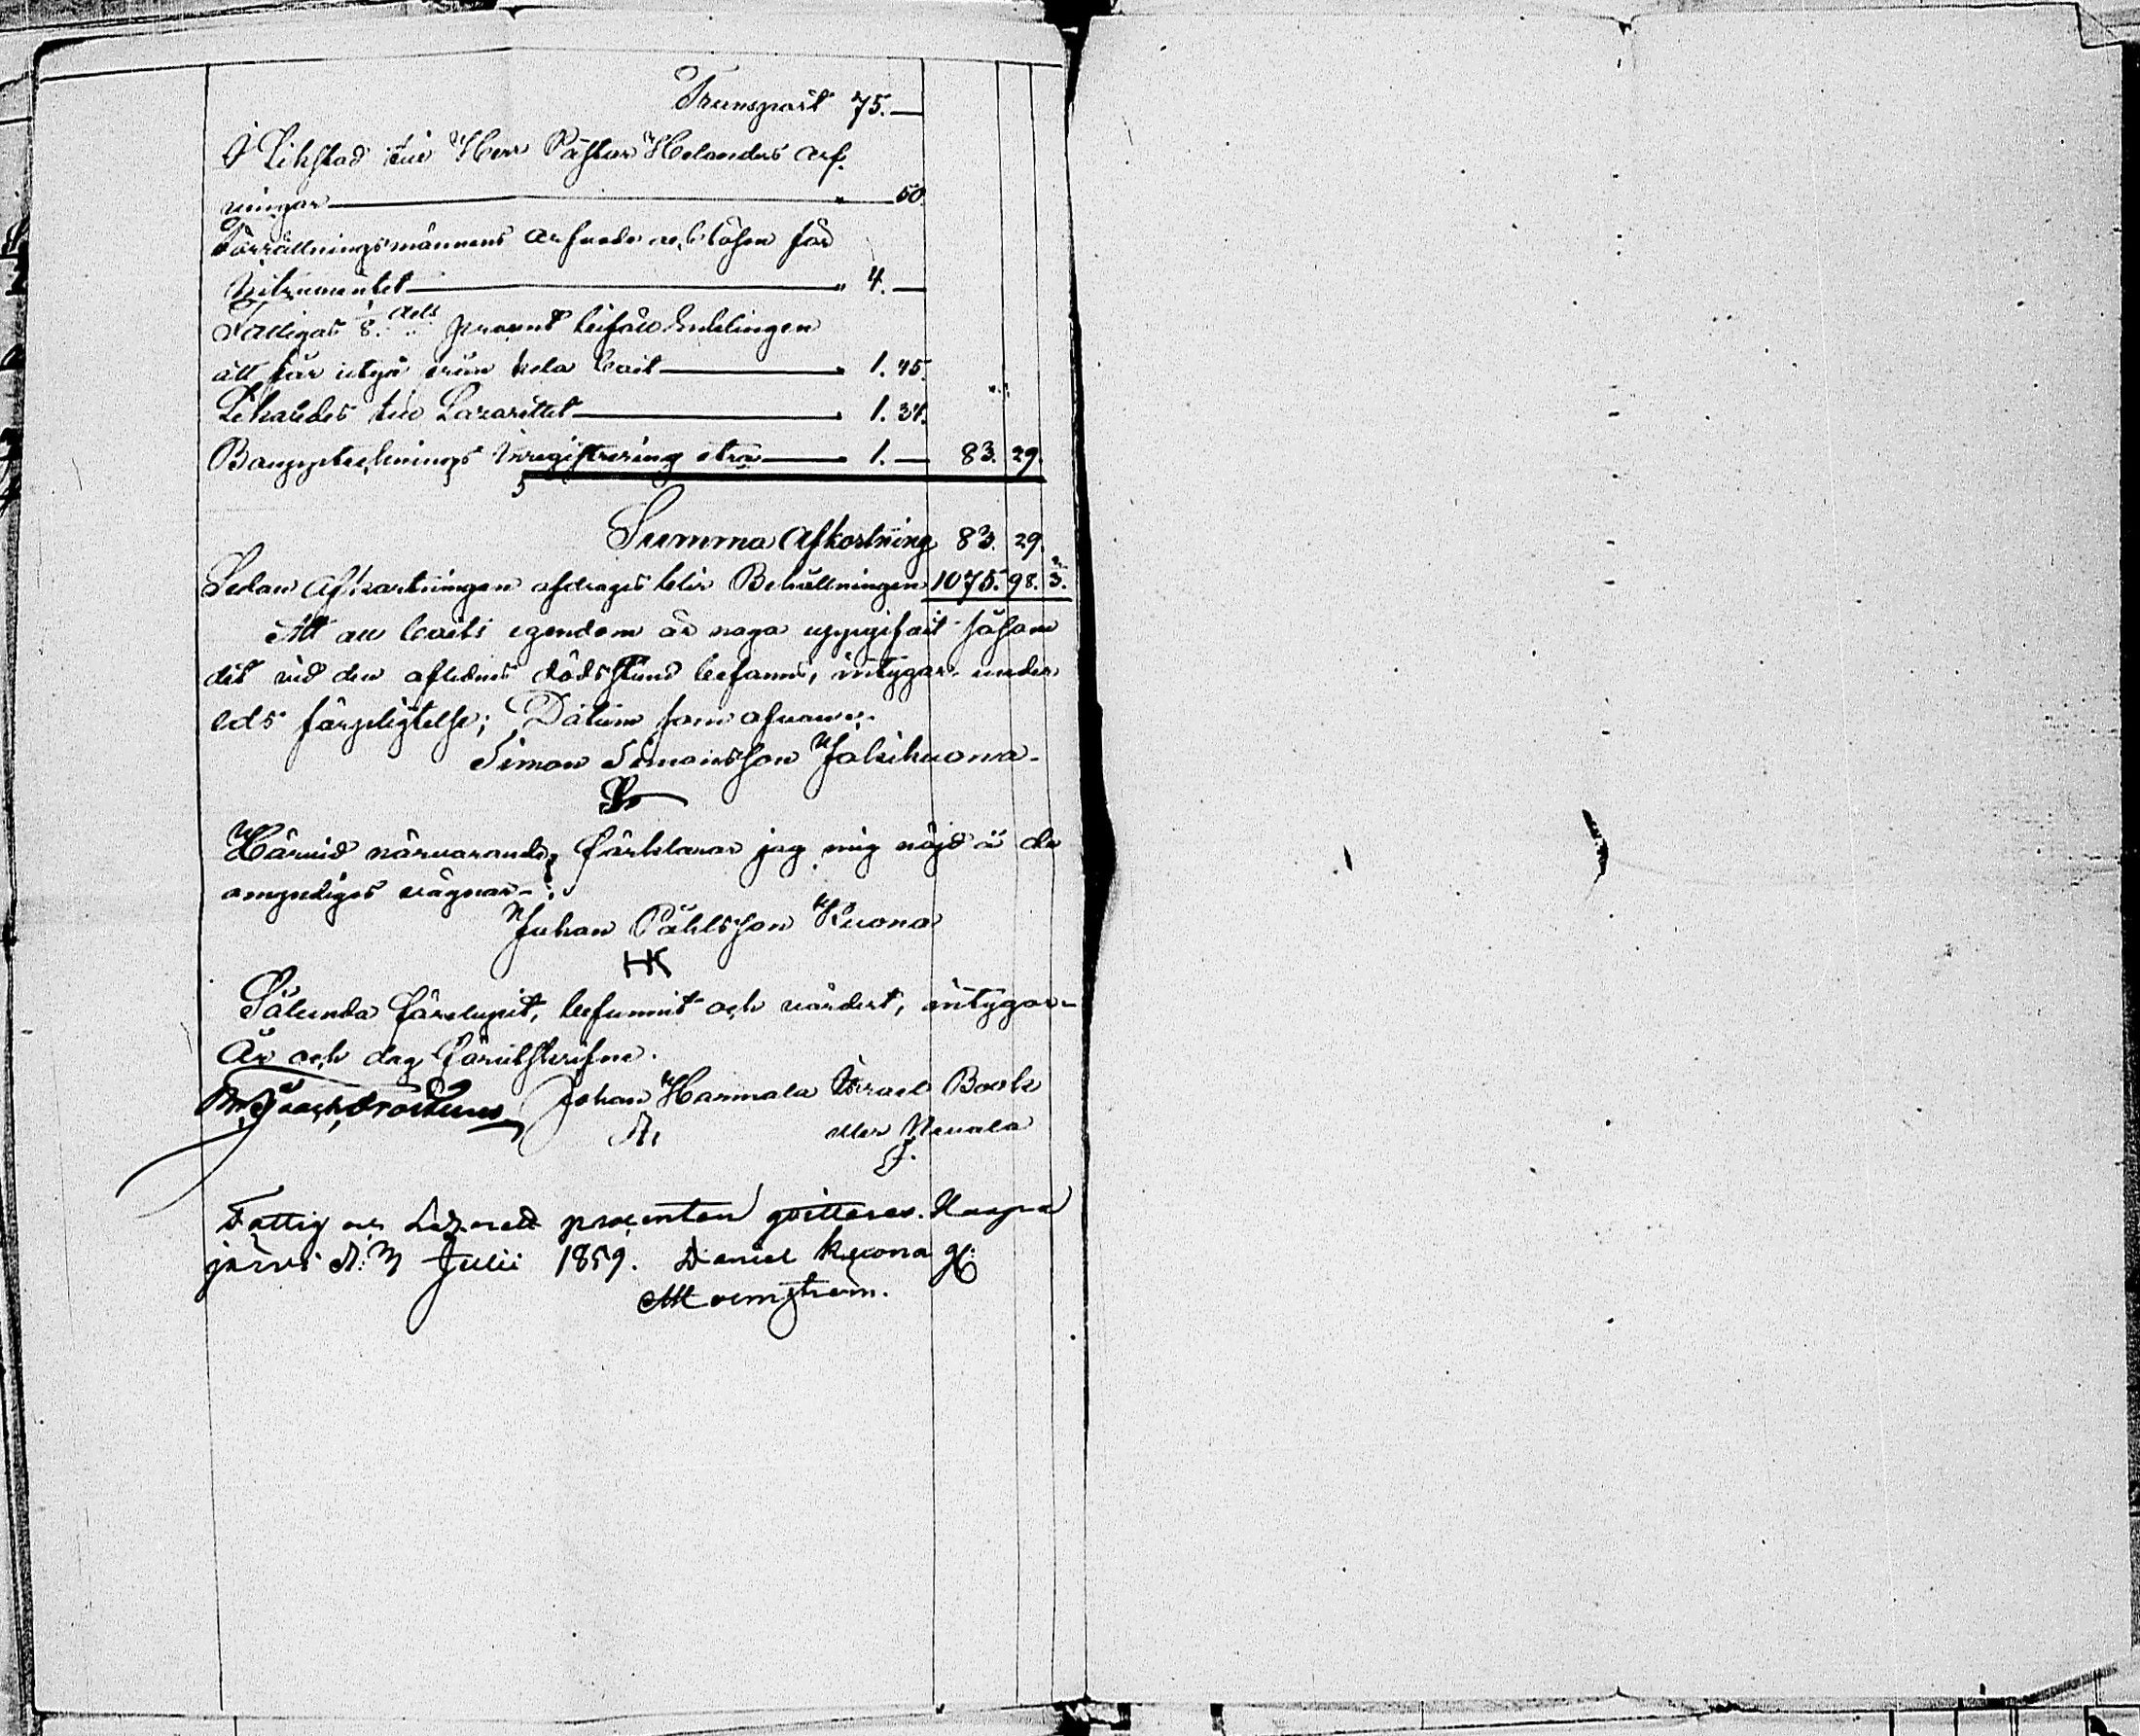 Transport 75.—
I Likstod till Herr Pastor Helanders arf-
vingar — " — 50.
Förrättningsmännens arfvode och lösen för
Instrumentet — " 4.—
Fattigas 1/8 dels procent
att för utgå från hela boet — " 1. 45.
Likaledes till Lazarettet — " 1. 34.
Bouppteknings inregistrering etra — " 1.— 83. 29.
Summa Afkortning 83. 29.
Sedan Afkortningen afdragits blir Behållningen 1075. 98. 3.
Att all boets egendom är noga uppgifvit såsom
det vid den aflednes dödsstund befanns, intygar under
eds förpligtelse; Datum som ofvan.
Simon Simonsson Jälikuona.
Härvid närvarande, förklarar jag mig nöjd å de
omyndiges vägnar:
Johan Påhlsson Kuona
HK
Sålunda förelupit, befunnit och värdert, intygar
År och dag förutskrifne.
Johan Harmala Israel Book
eller Nevala
Fattig och Lazarett procenten qvitteras. Haapa
järvi d. Julii 1859. Daniel Kuona